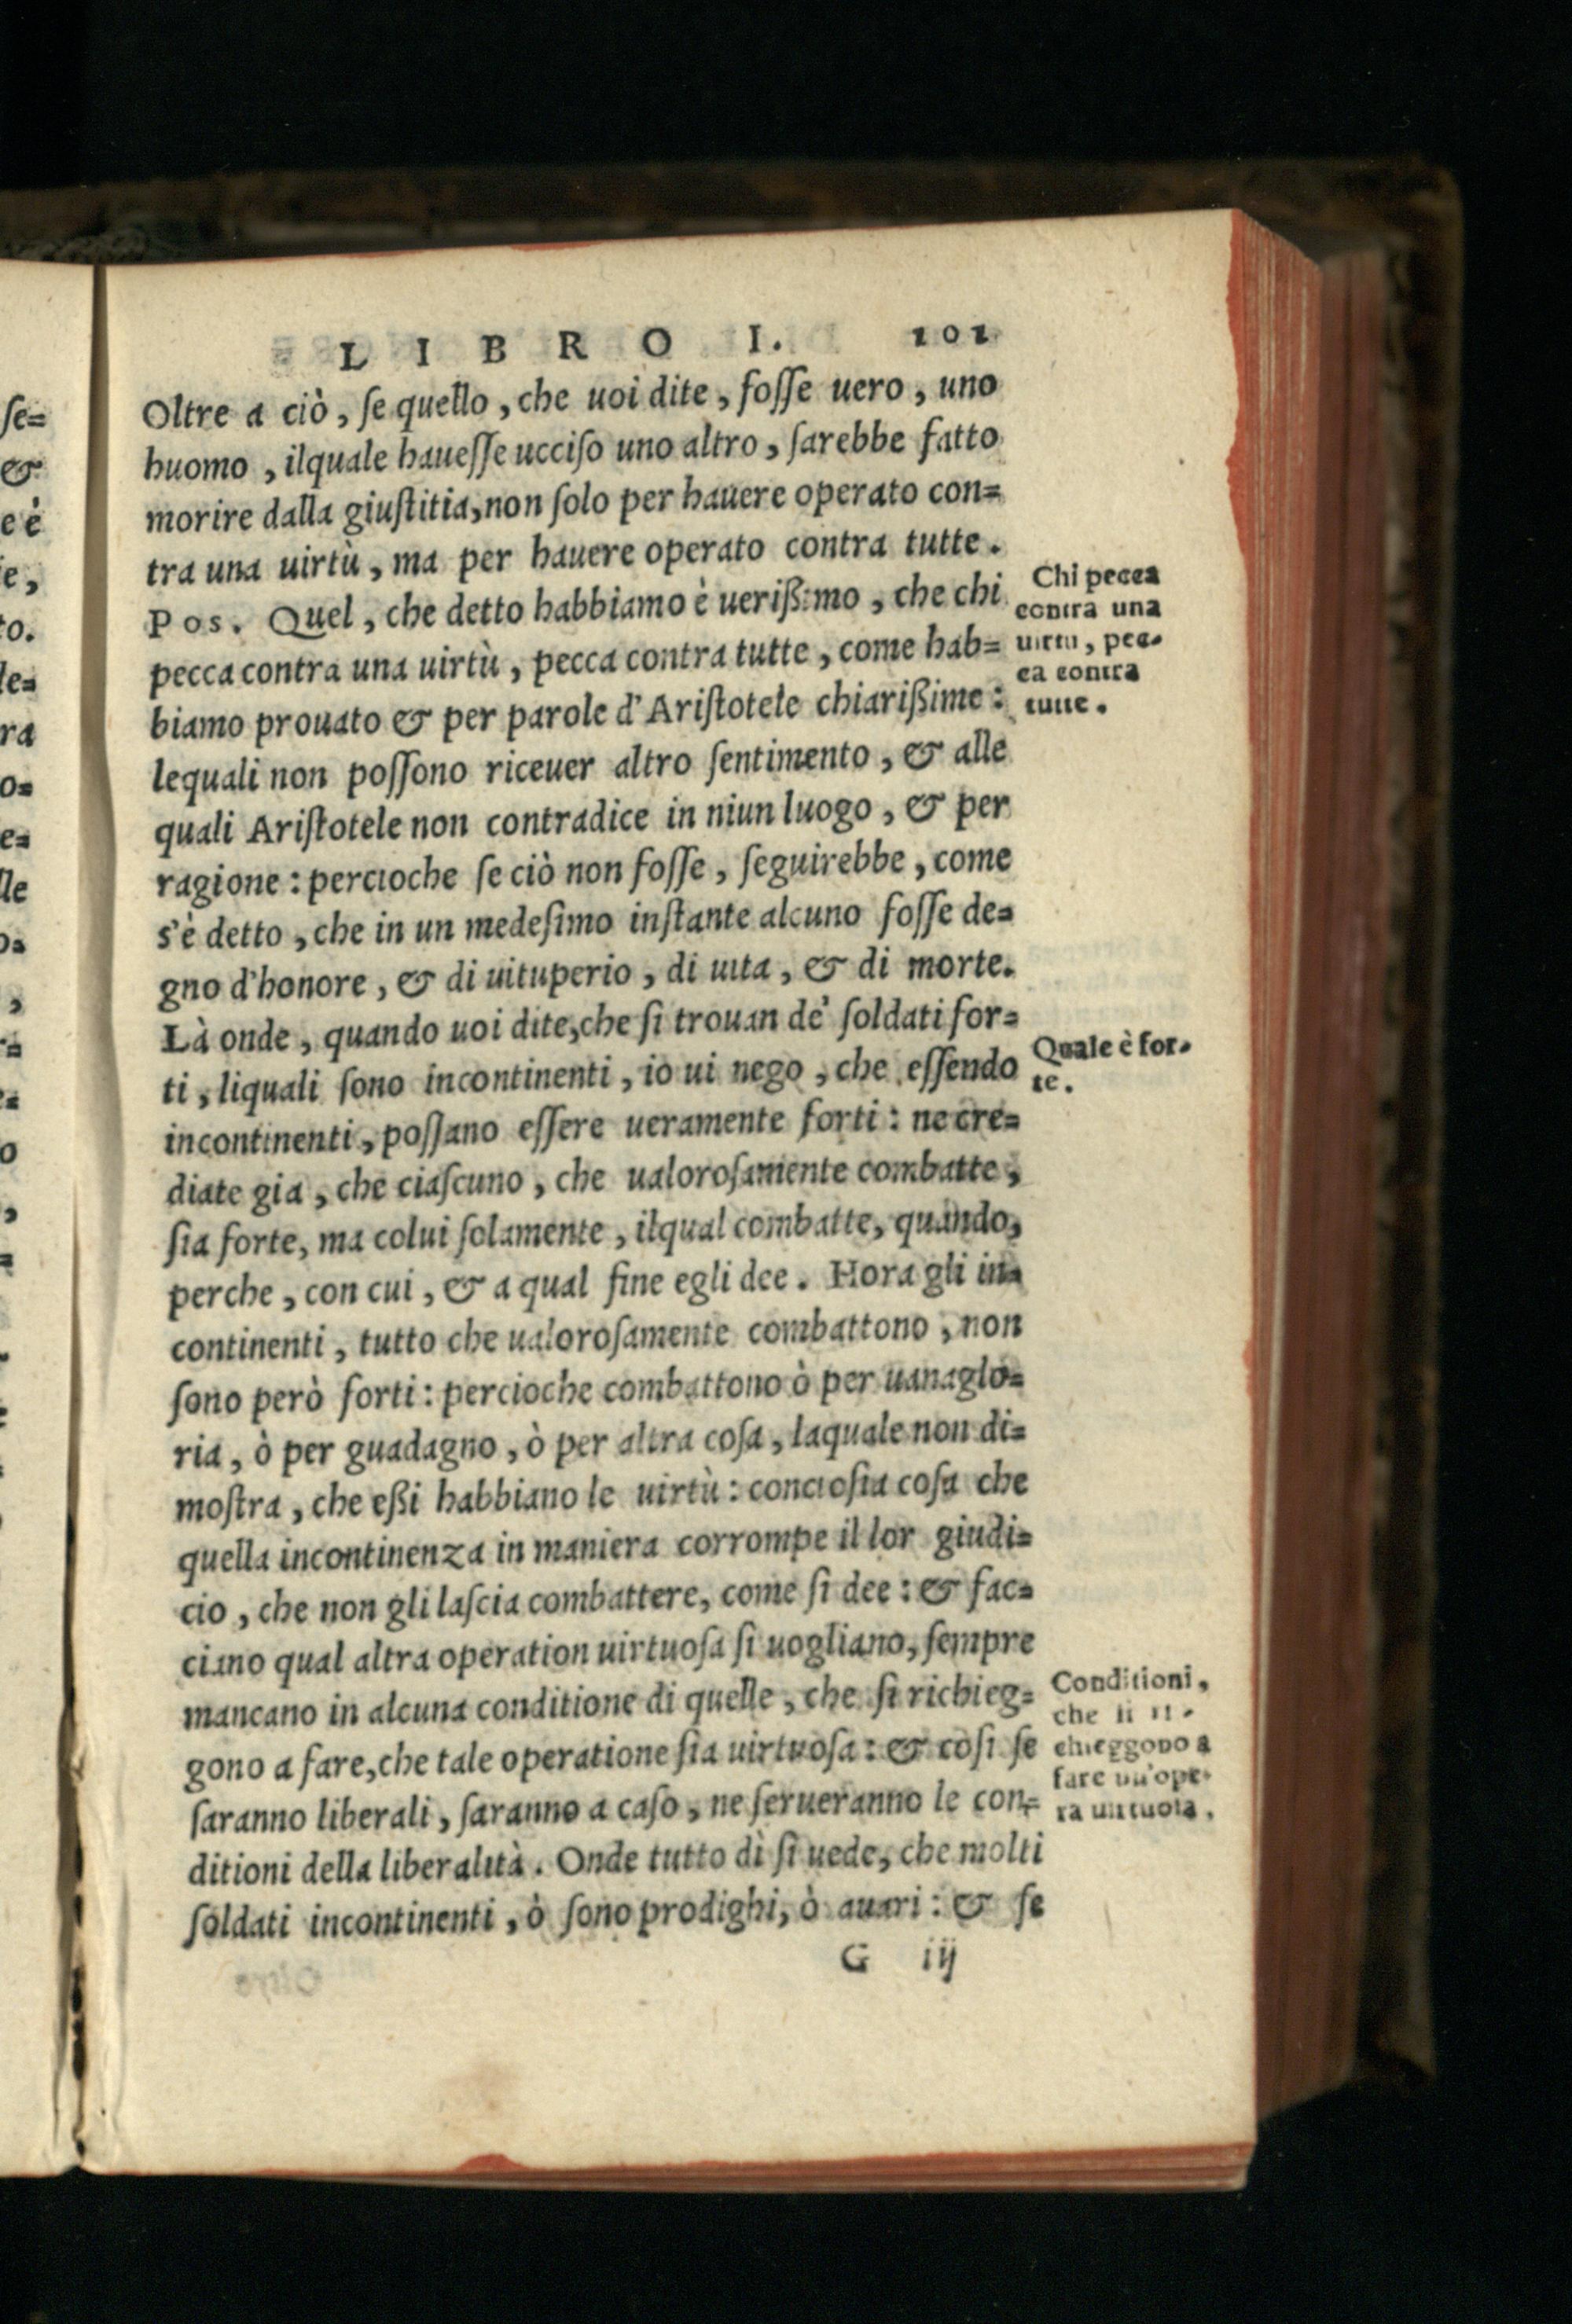 LIBRO I. 101
Oltre a ciò, ſe quello, che uoi dite, foſſe uero, uno
huomo, ilquale haueſſe ucciſo uno altro, ſarebbe fatto
morire dalla giuſtitia, non ſolo per hauere operato con=
tra una uirtù, ma per hauere operato contra tutte.
Pos. Quel, che detto habbiamo è uerißimo, che chi
pecca contra una uirtù, pecca contra tutte, come hab=
biamo prouato & per parole d'Ariſtotele chiarißime:
lequali non poſſono riceuer altro ſentimento, & alle
quali Ariſtotele non contradice in niun luogo, & per
ragione: percioche ſe ciò non foſſe, ſeguirebbe, come
s'è detto, che in un medeſimo inſtante alcuno foſſe de=
gno d'honore, & di uituperio, di uita, & di morte.
Là onde, quando uoi dite, che ſi trouan de' ſoldati for=
ti, liquali ſono incontinenti, io ui nego, che eſſendo
incontinenti, poſſano eſſere ueramente forti: ne cre=
diate gia, che ciaſcuno, che ualoroſamente combatte,
ſia forte, ma colui ſolamente, ilqual combatte, quando,
perche, con cui, & a qual fine egli dee. Hora gli in=
continenti, tutto che ualoroſamente combattono, non
ſono però forti: percioche combattono ò per uanaglo=
ria, ò per guadagno, ò per altra coſa, laquale non di=
moſtra, che eßi habbiano le uirtù: concioſia coſa che
quella incontinenza in maniera corrompe il lor giudi=
cio, che non gli laſcia combattere, come ſi dee: & fac=
ciano qual altra operation uirtuoſa ſi uogliano, ſempre
mancano in alcuna conditione di quelle, che ſi richieg=
gono a fare, che tale operatione ſia uirtuoſa: & coſi ſe
ſaranno liberali, ſaranno a caſo, ne ſerueranno le con=
ditioni della liberalità. Onde tutto dì ſi uede, che molti
ſoldati incontinenti, ò ſono prodighi, ò auari: & ſe
G iij
Chi pecca
contra una
uirtu, pec-
ca contra
tutte.
Quale è for-
te.
Conditioni,
che ſi ri-
chieggono a
fare un'ope-
ra uirtuoſa.
ſe=
&
e è
e,
to.
le=
ra
o=
e=
lle
o=
,
r=
e=
o
,
=